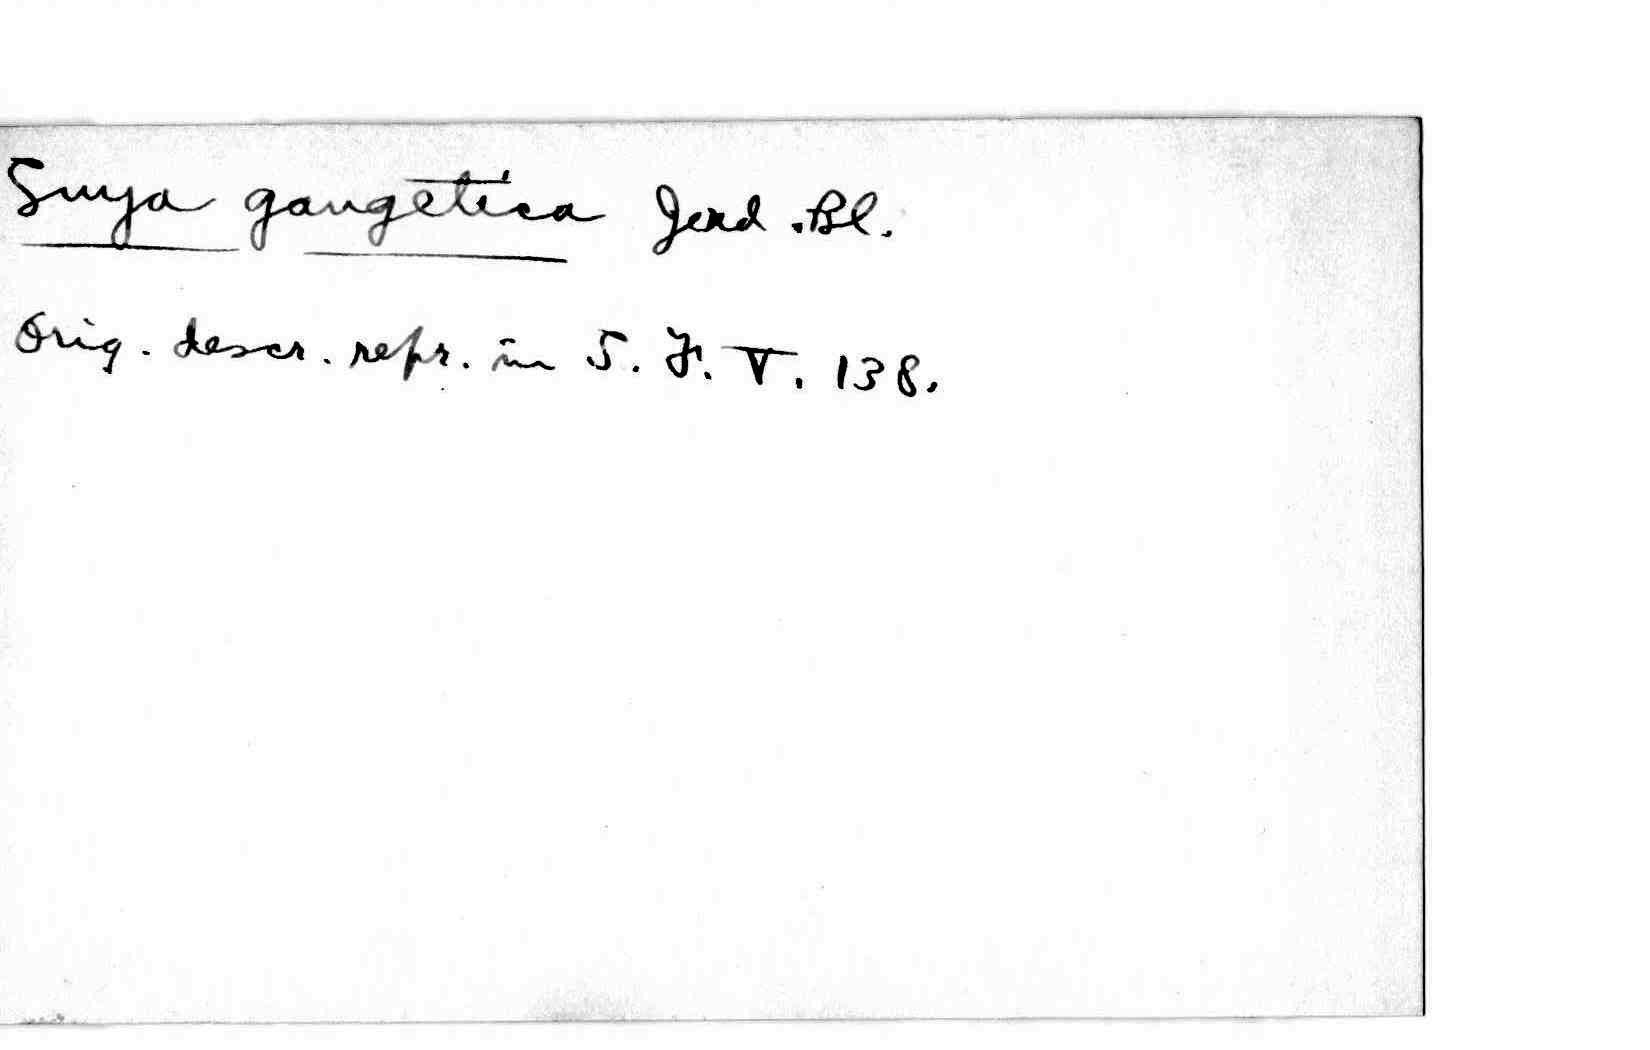 Suya gangetica Jerd. Bl.
Orig. descr. repr. in S. F. V. 138.